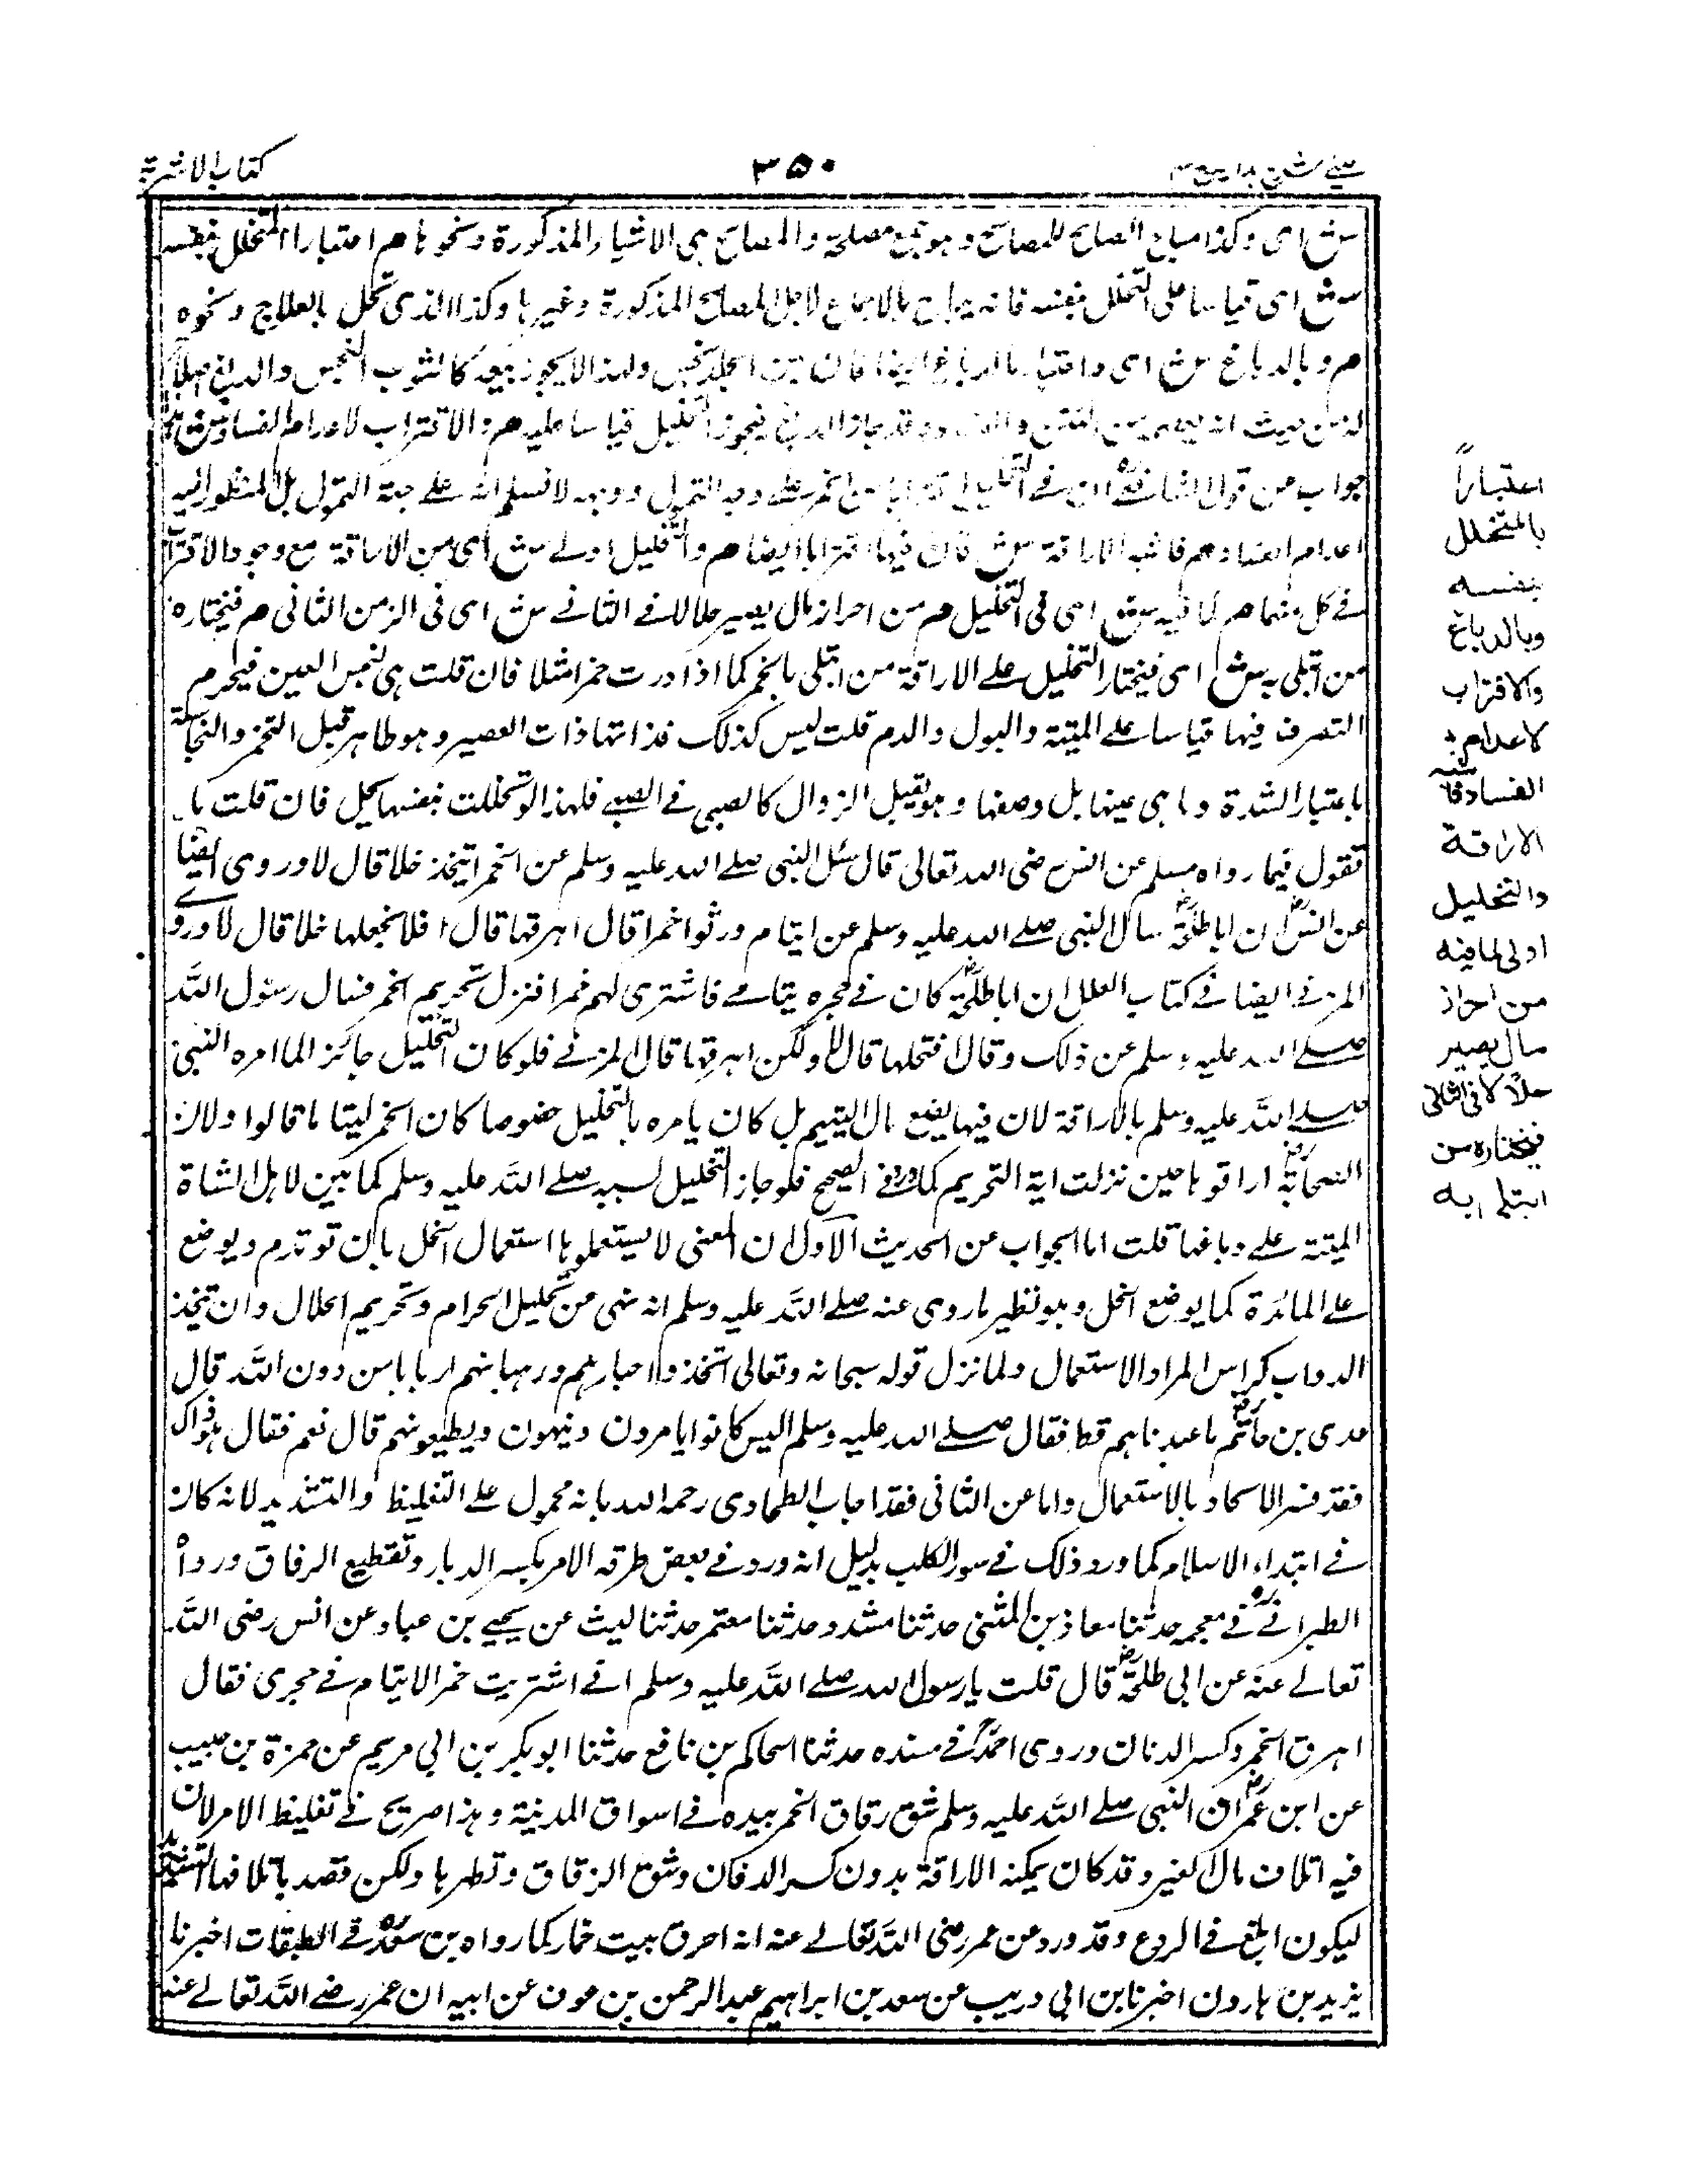 عینی شرح ہدایہ ج ۳
۳۵۰
کتاب الاشربة
ش ای وکذا صباغ الصالح للمصالح وهو جمع مصلحة والمصالح هی الاشیاء المذکورة ونحوها م اعتبارا بالمتخلل بنفسه
ش ای قیاسا علی التخلل بنفسه فانه مباح بالاجماع لاجل المصالح المذکورة وغیرها وکذا الذی تخلل بالعلاج ونحوه
م وبالدباغ ش ای واعتبارا بالدباغ ایضا فان عین الجلد نجس ولهذا لایجوز بیعه کالثوب النجس والدباغ اصلاح
له من حیث انه یعصمه من النتن والفساد وقد جاز الدباغ فیجوز التخلیل قیاسا علیه م والاقتراب لاعدام الفساد ش
جواب عن قول الشافعی ان فی التخلیل اقترابا من الخمر علی وجه التمول ووجهه لانسلم انه علی جهة التمول بل المنظور الیه
اعدام الفساد م فاشبه الاراقة ش فان فیها اقترابا ایضا م والتخلیل اولے ش ای من الاراقة مع وجود الاقتراب
فی کل منهما م لما فیه ش ای فی التخلیل م من احراز مال یصیر حلالا فے الثانے ش ای فی الزمن الثانی م فیختاره
من ابتلی به ش ای فیختار التخلیل علی الاراقة من ابتلی بالخمر کما اذا ورث خمرا مثلا فان قلت هی نجس العین فیحرم
التصرف فیها قیاسا علے المیتة والبول والدم قلت لیس کذلک فذاتها ذات العصیر وهو طاهر قبل التخمر والنجاسة
باعتبار الشدة وما هی عینها بل وصفها وهو تقبل الزوال کالصبی فے الصبے فلهذا لو تخللت بنفسها یحل فان قلت ما
تقول فیما رواه مسلم عن انس رضی الله تعالی قال سئل النبی صلے الله علیه وسلم عن الخمر اتتخذ خلا قال لا وروی ایضا
عن انس ان اباطلحة سال النبی صلے الله علیه وسلم عن ایتام ورثوا خمرا قال اهرقها قال افلا نجعلها خلا قال لا وروی
المزنے ایضا فے کتاب العلل ان اباطلحة کان فے حجره یتامے فاشتری لهم خمرا فنزل تحریم الخمر فسال رسول الله
صلے الله علیه وسلم عن ذلک وقال افتخلها قال لا ولکن اهرقها قال المزنے فلو کان التخلیل جائز الما امره النبی
صلے الله علیه وسلم بالاراقة لان فیها یضع مال الیتیم بل کان یامره بالتخلیل خصوصا کان الخمر لیتاما قالوا ولان
الصحابة اراقوها حین نزلت ایة التحریم کما ورد فے الصحیح فلو جاز التخلیل لبینه صلے الله علیه وسلم کما بین لاهل الشاة
المیتة علے دباغها قلت اما الجواب عن الحدیث الاول ان المعنی لا یستعملوها استعمال الخل بان توتدم ویوضع
علے المائدة کما یوضع الخل وهو نظیر ما روی عنه صلے الله علیه وسلم انه نهی من تحلیل الحرام وتحریم الحلال وان تتخذ
الدواب کراسی المراد الاستعمال ولما نزل قوله سبحانه وتعالی اتخذوا احبارهم ورهبانهم اربابا من دون الله قال
عدی بن حاتم ما عبدناهم قط فقال صلے الله علیه وسلم الیس کانوا یامرون وینهون ویطیعونهم قال نعم فقال هو ذاک
فقد فسر الاتحاد بالاستعمال واما عن الثانی فقد اجاب الطحاوی رحمه الله بانه محمول علے التغلیظ والتشدید لانه کان
فے ابتداء الاسلام کما ورد ذلک فے سور الکلب بدلیل انه ورد فے بعض طرقه الامر بکسر الدبار وتقطیع الرقاق ورواه
الطبرانے فے معجمه حدثنا معاذ بن المثنی حدثنا مسدد وحدثنا معتمر حدثنا لیث عن یحیے بن عباد عن انس رضی الله
تعالے عنه عن ابی طلحة قال قلت یا رسول الله صلے الله علیه وسلم انے اشتریت خمر الایتام فے حجری فقال
اهرق الخمر وکسر الدنان وروی احمد فے مسنده حدثنا الحاکم بن نافع حدثنا ابوبکر بن ابی مریم عن حمزة بن حبیب
عن ابن عمر ان النبی صلے الله علیه وسلم شق رقاق الخمر بیده فے اسواق المدینة وهذا صریح فے تغلیظ الامر لان
فیه اتلاف مال الغیر وقد کان یمکنه الاراقة بدون کسر الدفان وشق الزقاق وتطهرها ولکن قصد باتلافها التشدید
لیکون ابلغ فے الردع وقد ورد عن عمر رضی الله تعالے عنه انه احرق بیت خمار کما رواه بن سعد فے الطبقات اخبرنا
یزید بن هارون اخبرنا بن ابی دریب عن سعد بن ابراهیم عبد الرحمن بن عوف عن ابیه ان عمر رضے الله تعالے عنه
اعتباراً
بالمتخلل
بنفسه
وبالدباغ
والاقتراب
لاعدام
الفساد فاشبه
الاراقة
والتخلیل
اولی لما فیه
من احراز
مال یصیر
حلالا فی الثانی
فیختاره من
ابتلی به